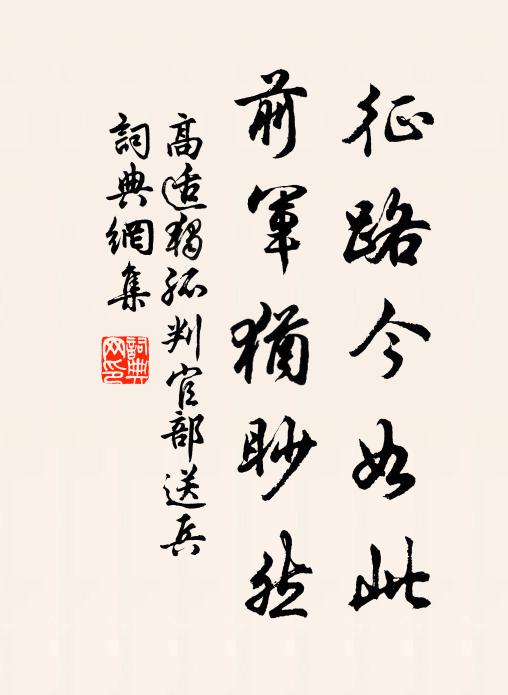 征路今如此
前軍猶眇然
高适獨孤判官部送兵
詞典網集
詞典網印